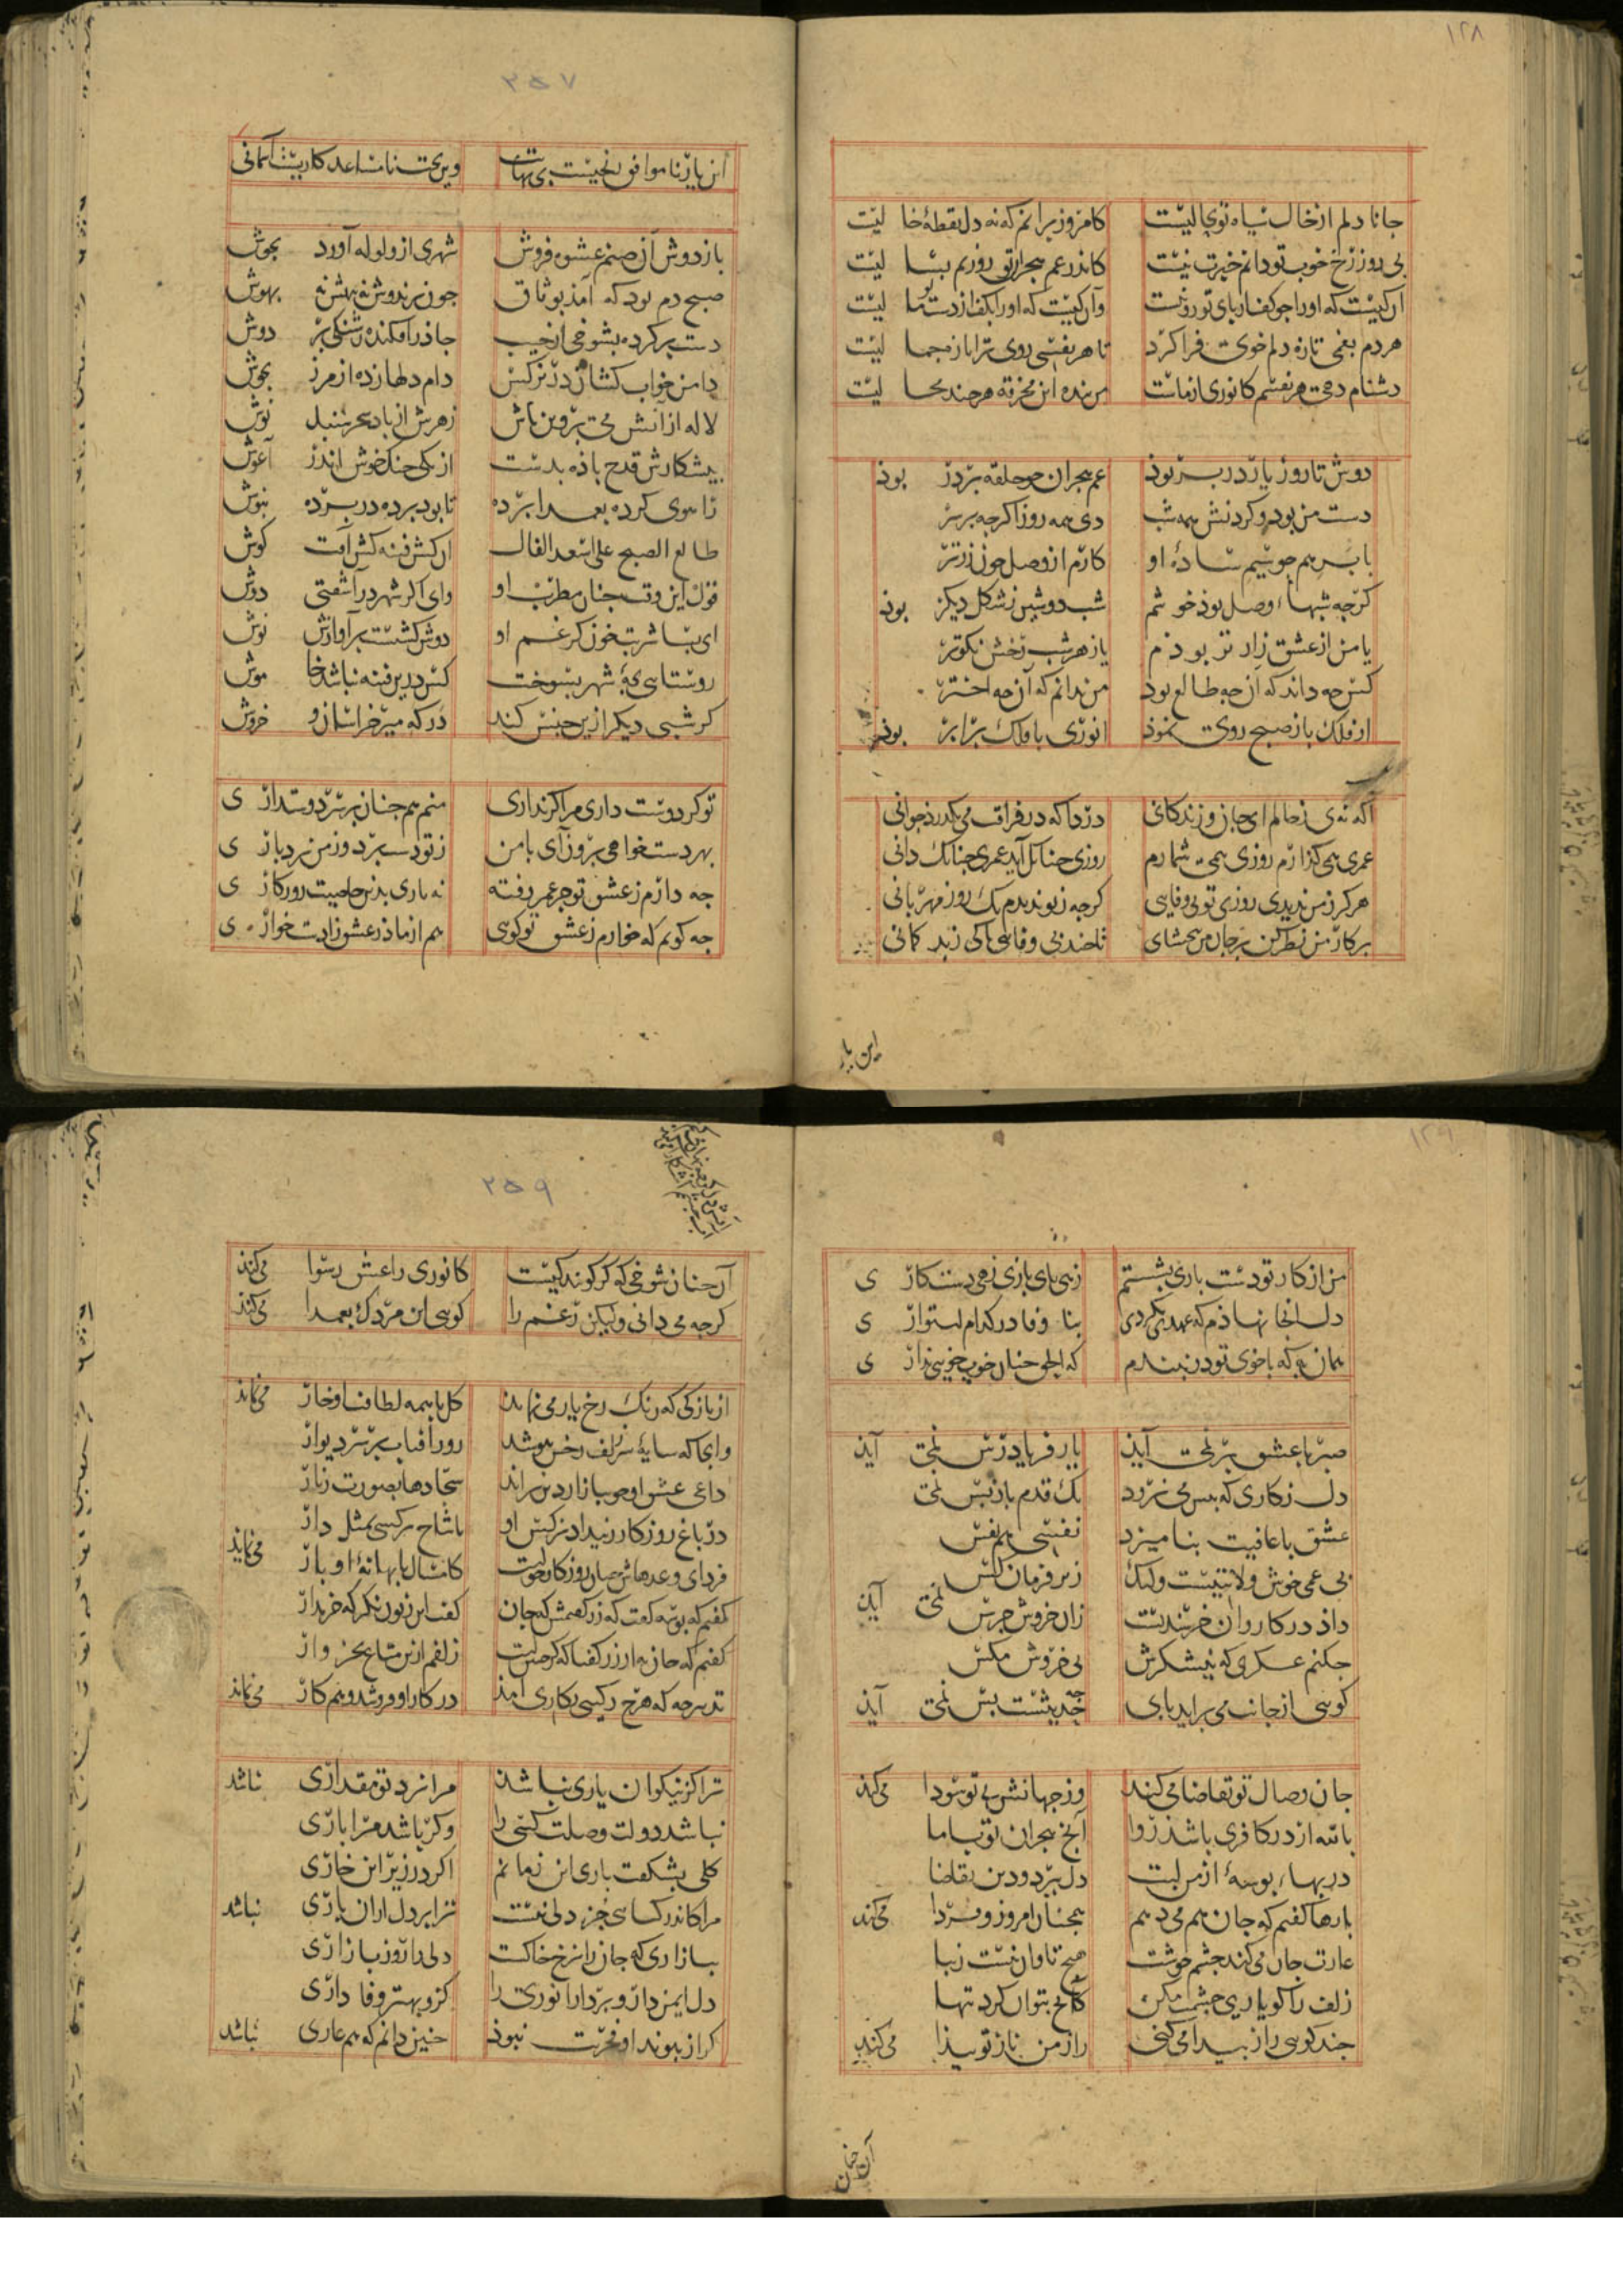 ۱۲۸
جانا دلم از خال سیاه تو بحالیست کامروز برانم که نه دل نقطهٔ خا لیست
بی روز رخ خوب تو دانم خبرت نیست کاندر غم هجران تو روزم بسا لیست
آن کیست که او را جو کف از پای تو روزیست وآن کیست که او را بکف از دست تو ما لیست
هر دم بغمی تازه دلم خوی فرا کرد تا هر نفسی روی ترا تازه جما لیست
دشنام دهی هر نفسم کانوری از ماست من بنده این مخرقه هر چند محا لیست
دوش تا روز یار در بر بود غم هجران چو حلقه بر در بود
دست من بود و گردنش همه شب دی همه روز اگرچه بر سر
با بر همچو سیم سادهٔ او کارم از وصل چون زر تر
گرچه شبهاء وصل بود خوشم شب دوشین ز شکل دیگر بود
یا من از عشق زار تر بودم یا ز هر شب رخش نکوتر
کس چه داند که آن چه طالع بود من ندانم که آن چه اختر
از فلک باز صبح روی نمود انوری با فلک برابر بود
آگه نه‌ی ز حالم ای جان و زندگانی دردا که در فراقت می بگذرد جوانی
عمری همی گذارم روزی همی شمارم روزی چنانک آید عمری چنانک دانی
هرگز ز من ندیدی روزی تو بی وفایی گرچه ز تو ندیدم یک روز مهربانی
بر کار من نظر کن بر جان من ببخشای تا چند بی وفایی تا کی ز بد گمانی
این یار
۲۵۷
این یار ناموافق نجیست بی نهایت وین بخت نامساعد کاریست آسمانی
باز دوش آن صنم عشوه فروش شهری از ولوله آورد بجوش
صبح دم بود که آمد بوثاق جون پرندوش نه بهش نه بهوش
دست بر کرده بشوخی از جیب جادر افکنده ز شنگی بر دوش
دامن خواب کشان در نرگس دام دلها زده از مرز بجوش
لاله از آتش می پروین پاش زهرش از باد سحر سنبل نوش
پیشکارش قدح باده بدست از یکی جنگ خوش اندر آغوش
زاهوی کرده بعمدا پرده تا بود پرده در پرده نیوش
طالع الصبح علی اسعد الفال آن کش فتنه کش آفت کوش
قول این وقت چنان مطرب او وای اگر شهر در آشفتی دوش
ای بسا شربت خون کز غم او دوش گشتست بر آوازش نوش
روستایی بچهٔ شهر بسوخت کس در این فتنه نباشد خا موش
گر شبی دیگر ازین جنس کند در که میر خراسان و خروش
تو گر دوست داری مرا گر نداری منم هم چنان بر سر دوستدار ی
بهر دست خواهی برون آی با من ز تو دست برد و ز من بردبار ی
چه دارم ز عشق تو جز عمر رفته نه باری بدین خاصیت روزگار ی
چه گویم که خوارم ز عشق تو گویی هم از مادر عشق زادست خوار ی
۱۲۹
من از کار تو دست باری بشستم زهی پای بازی زهی دستکار ی
دل آنجا نهادم که عهدی نکردی بنا وفا در کدام استوار ی
همان به که با خوی تو دل نبندم که الحق چنان خوب خویی ندار ی
صبر با عشق بر نمی آید یار فریاد رس نمی آید
دل ز کاری که پیش می نرود یک قدم باز پس نمی
عشق با عافیت بنامیزد نفسی هم نفس
بی غمی خوش ولایتیست ولیک زیر فرمان کس
داد در کاروان خرسندیست زان خروش جرس نمی آید
چکنم عسکری که نیشکرش بی خروش مگس
گویی از جانت می برآید پای چه حدیثست بس نمی آید
جان وصال تو تقاضا می کند وز جهانش بی تو سودا می کند
بالله از در کافری باشد روا آنچ هجران تو با ما
در بهاء بوسهٔ از من لبت دل ببرد و دین تقاضا
بارها گفتم که جان هم می دهم همچنان امروز و فردا می کند
غارت جان می کند چشم خوشت هیچ تاوان نیست زیبا
زلف را گو یاری چشمت مکن کانچ بتوان کرد تنها
چند گویی راز پیدا می کنی راز من ناز تو پیدا می کند
آن چنان
۲۵۹
آن چنان شوخی که گر گویند کیست کانوری را عشق رسوا می کند
گرچه می دانی ولیکن رغم را گویی این مردک بعمدا می کند
از بازکی که رنک رخ یار می نماید گل با همه لطافت او خار می نماید
وانجا که سایهٔ سر زلف رخش بپوشد روز آفتاب بر سر دیوار
داعی عشق او چو ببازار دین برآمد سجادها بصورت زنار
در باغ روزگار ز بیداد نرگس او تا شاخ نرگسی بمثل دار
فردای وعدهاش میان روزگار خویت کامسال با بهانهٔ او پار می نماید
گفتم که بوسه گفت که زر گفتمش که جان گفت این زبون نگر که خریدار
گفتم که جان به از زر گفتا که گر چنینست زلفم ازین متاع بخروار
تدبیر چه که هرچ رکیبی بکاری آمد در کار او فروشد و هم کار می نماید
ترا گر نیکوان یاری نباشد مرا نزد تو مقداری نباشد
نباشد دولت وصلت کسی را وگر باشد مرا باری
گلی بشکفت باری این زمانم اگر در زیر این خاری
مرا کاندر کسایی جز دلی نیست ترا بر دل ازان باری نباشد
ببازاری که جان را نرخ خاکست دلی را روز بازاری
دل ایمن دار و بردار انوری را کزو بهتر وفا داری
گر از پیوند او فخریت نبود چنین دانم که هم عاری نباشد